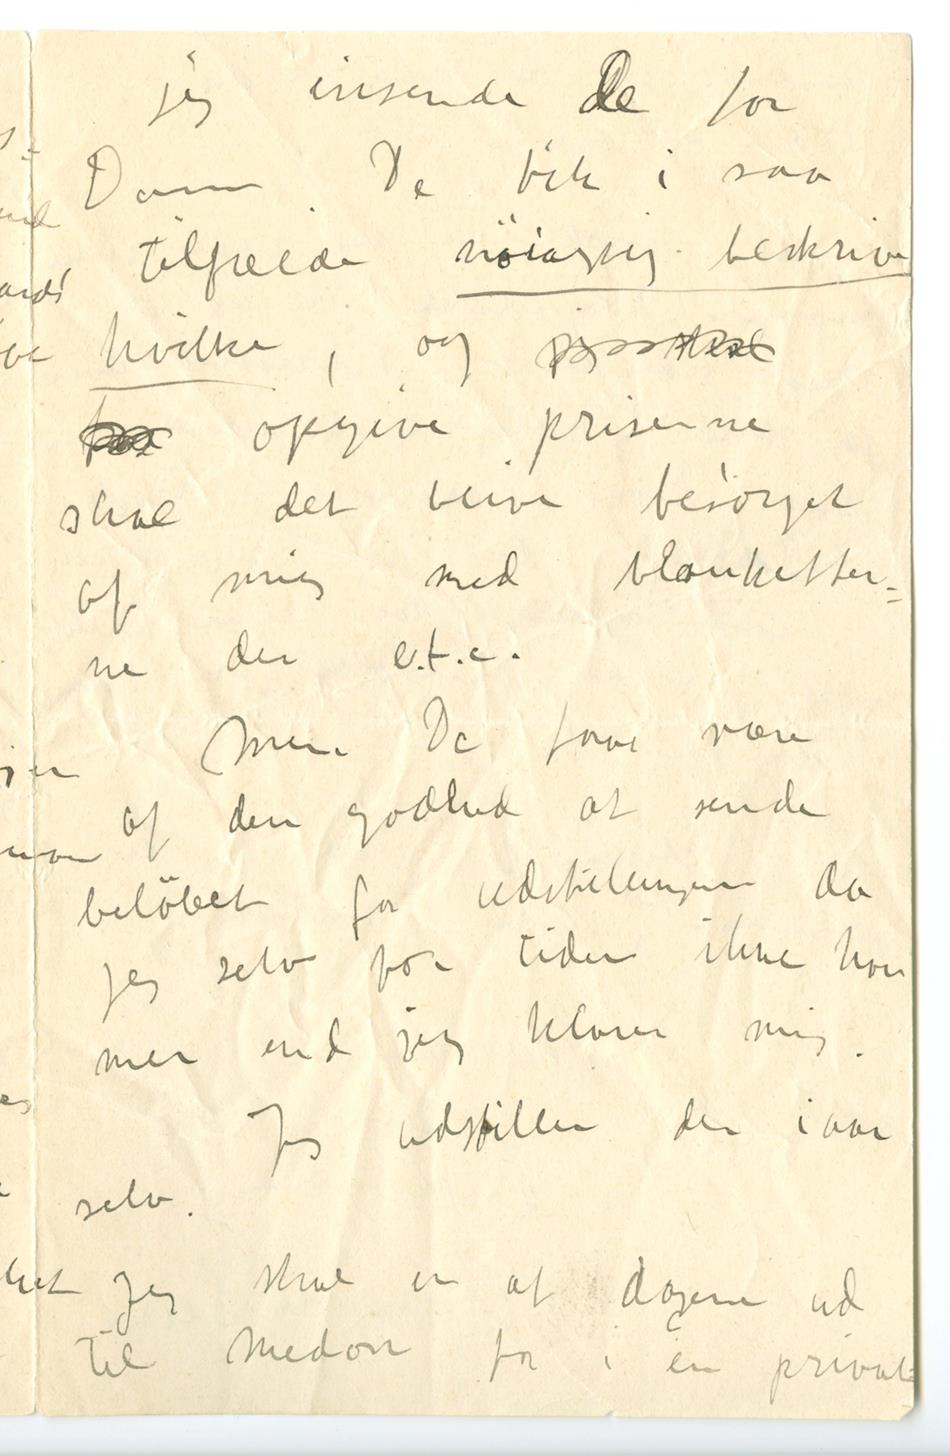 jeg insende De for
Dem De bile i saa
tilfælde nöiagtig beskrive
hvilke, og
opgive priserne
skal det blive besörget
af mig med blanketter=
ne der e.t.c.
Men De faar være
af den godhed at sende
belöbet for udstillingen da
jeg selv for tiden ikke har
mer end jeg klarer mig.
Jeg udstiller der iaar
selv.
Jeg skal en af dagene ud
til Medon for i en privat